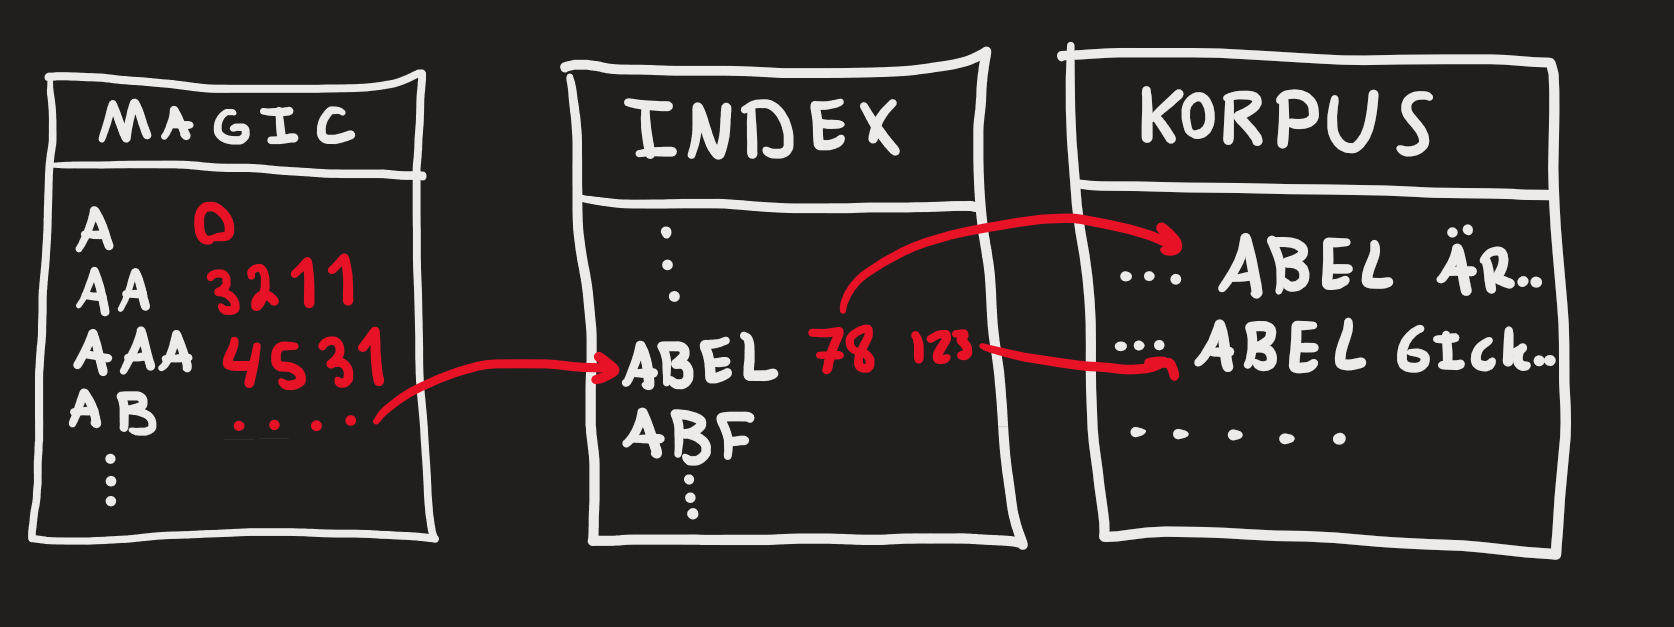 MAGIC
A 0
AA 3211
AAA 4531
AB ....
INDEX
ABEL 78 123
ABF
KORPUS
... ABEL ÄR..
... ABEL GICK..
.....